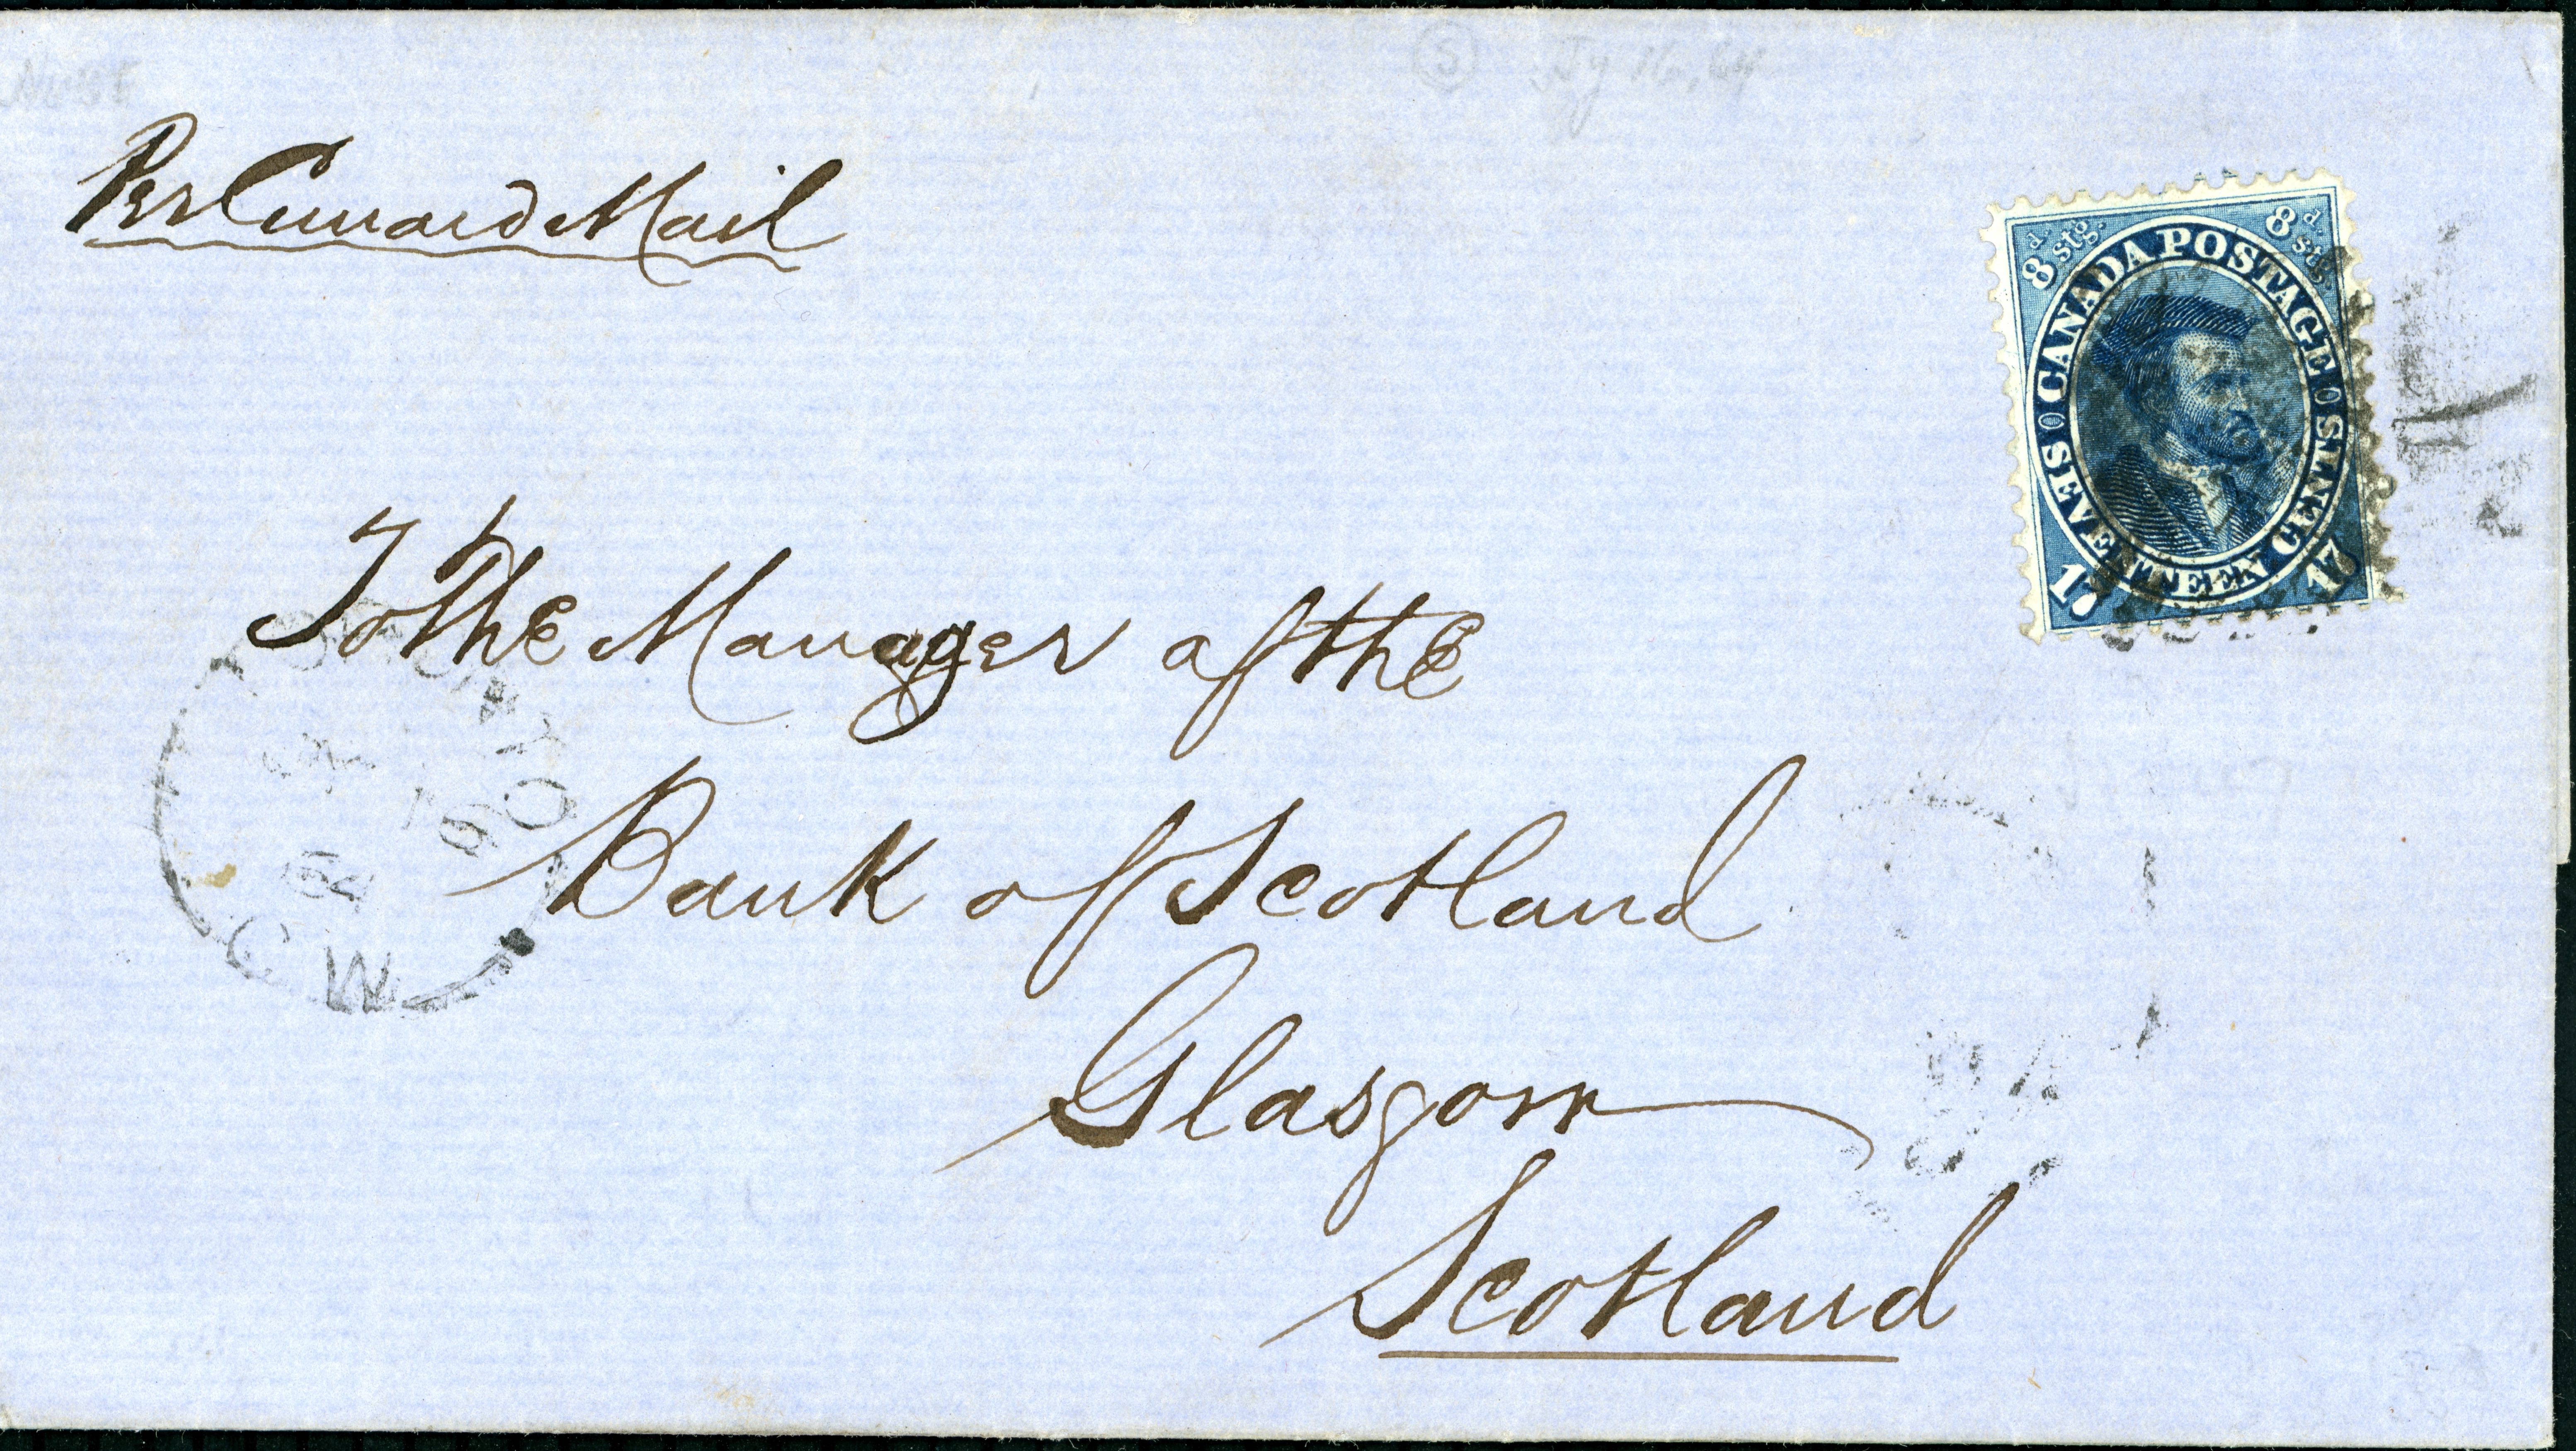 Per Cunard Mail
8 d. stg.
8 d. stg.
CANADA POSTAGE
SEVENTEEN CENTS
17
17
To the Manager of the
Bank of Scotland
Glasgow
Scotland
TORONTO
64
C W